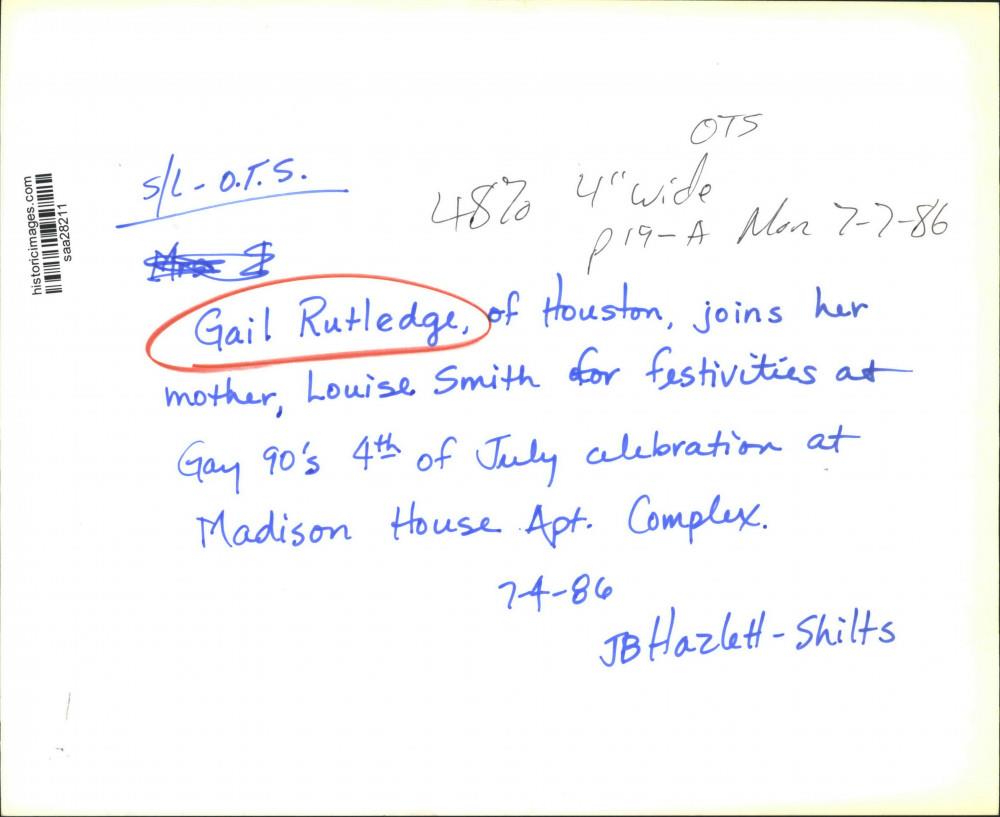 historicimages.com
saa28211
OTS
S/L - O.T.S.
48% 4" wide
p 19-A Mon 7-7-86
Gail Rutledge, of Houston, joins her
mother, Louise Smith for festivities at
Gay 90's 4th of July celebration at
Madison House Apt. Complex.
7-4-86
JB Hazlett-Shilts